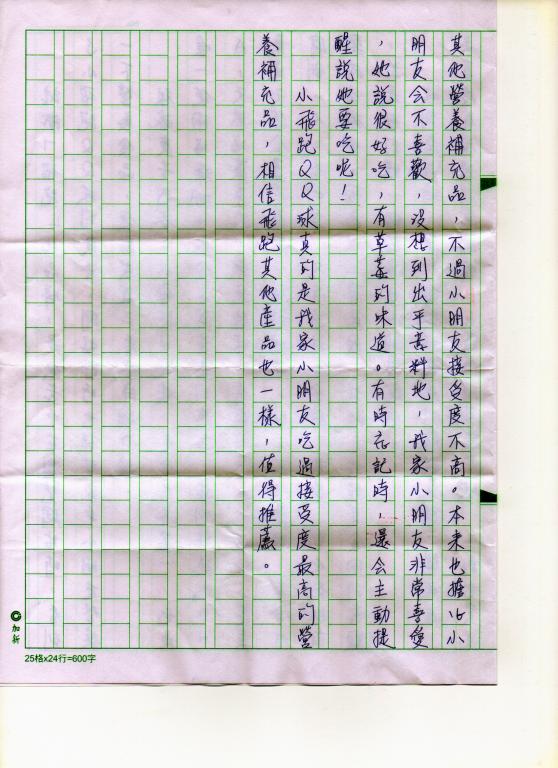 其他營養補充品，不過小朋友接受度不高。本來也擔心小
朋友會不喜歡，沒想到出乎意料地，我家小朋友非常喜愛
，她說很好吃，有草莓的味道。有時忘記時，還會主動提
醒說她要吃呢！
小飛跑QQ球真的是我家小朋友吃過接受度最高的營
養補充品，相信飛跑其他產品也一樣，值得推薦。
加新
25格x24行=600字